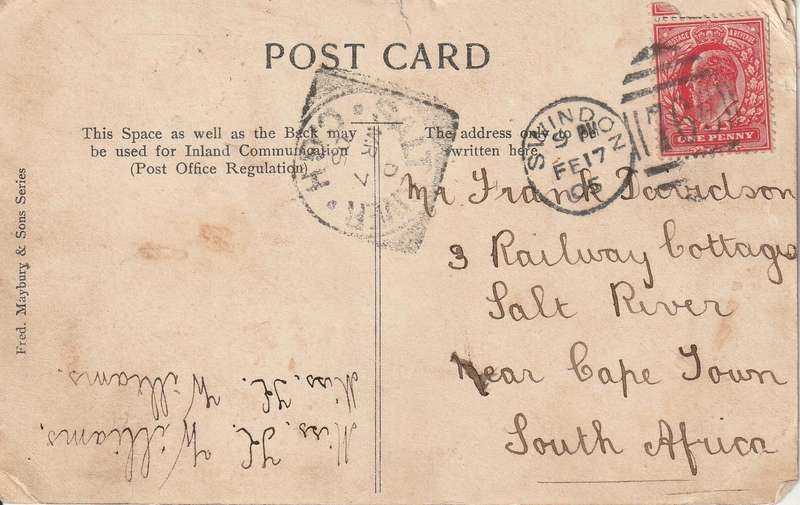 POST CARD
This Space as well as the Back may
be used for Inland Communication
(Post Office Regulation)
The address only to be
written here.
Fred. Maybury & Sons Series
SWINDON
FE 17
05
POSTAGE & REVENUE
ONE PENNY
SALT RIVER
MR 7
05
Mr Frank Davidson
3 Railway Cottages
Salt River
Near Cape Town
South Africa
Miss. H. Williams.
Miss. H. Williams.